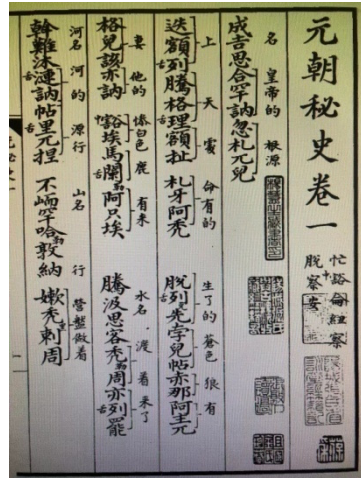 元朝秘史卷一
忙豁侖紐察
脫察安
名 皇帝的 根源
成吉思合罕訥忽札兀兒
上 天 處 命有的 生了的 蒼色 狼 有
迭額列騰格理額扯 札牙阿禿 脫列先孛兒帖赤那阿主兀
妻 他的 慘白色 鹿 有来 水名 渡着 来了
格兒該亦訥豁埃馬闌勒阿只埃 騰汲思客禿勒周亦列罷
河名 河的 源行 山名 行 營盤做着
斡難沐漣訥帖里兀捏 不峏罕哈勒敦納 嫩禿黑剌周